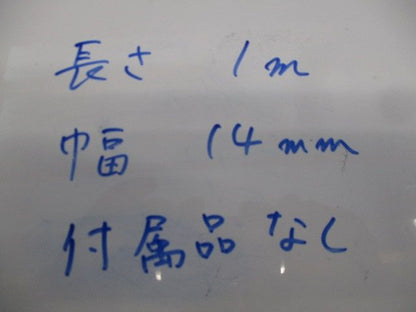 長さ 1m
幅 14mm
付属品なし